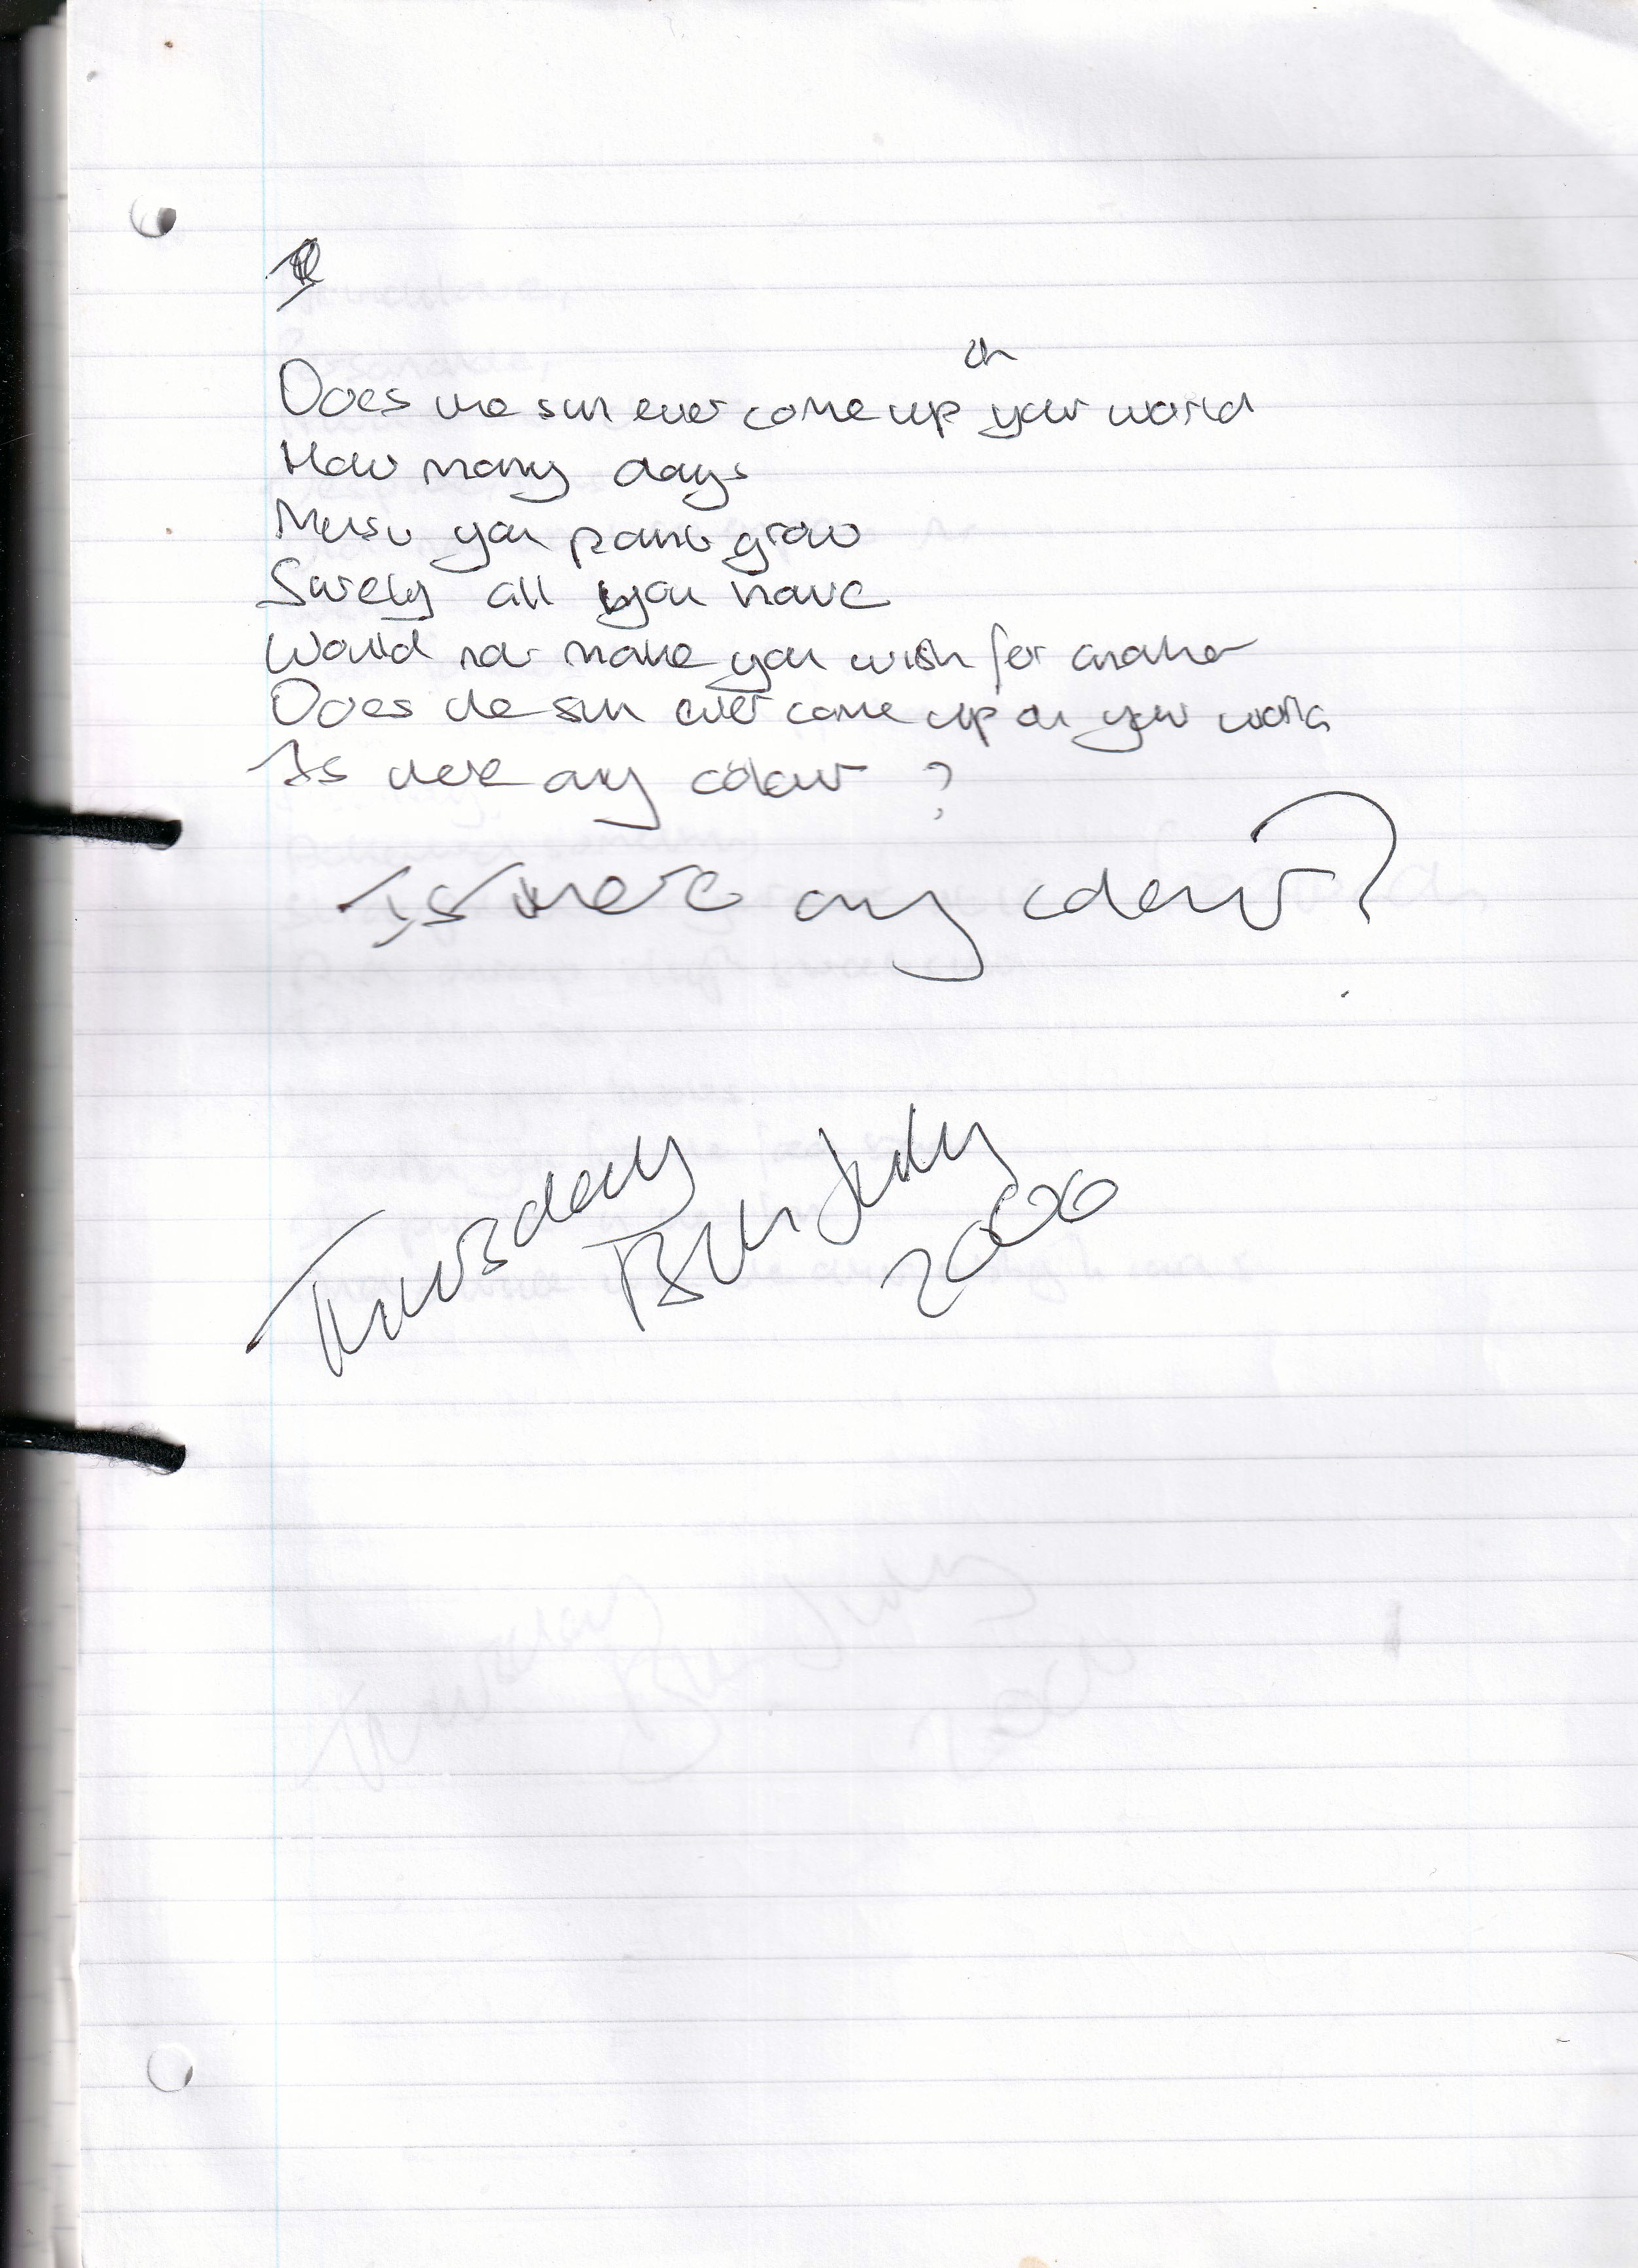 on
Does the sun ever come up your world
How many days
Must you paint grow
Surely all you have
Would not make you wish for another
Does the sun ever come up on your world
Is there any colour ?
Is there any colour?
Thursday
13th July
2000